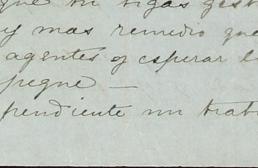 que tu digas gest
y mas remedio que
agentes y esperar l
pegue —
pendiente mi trab